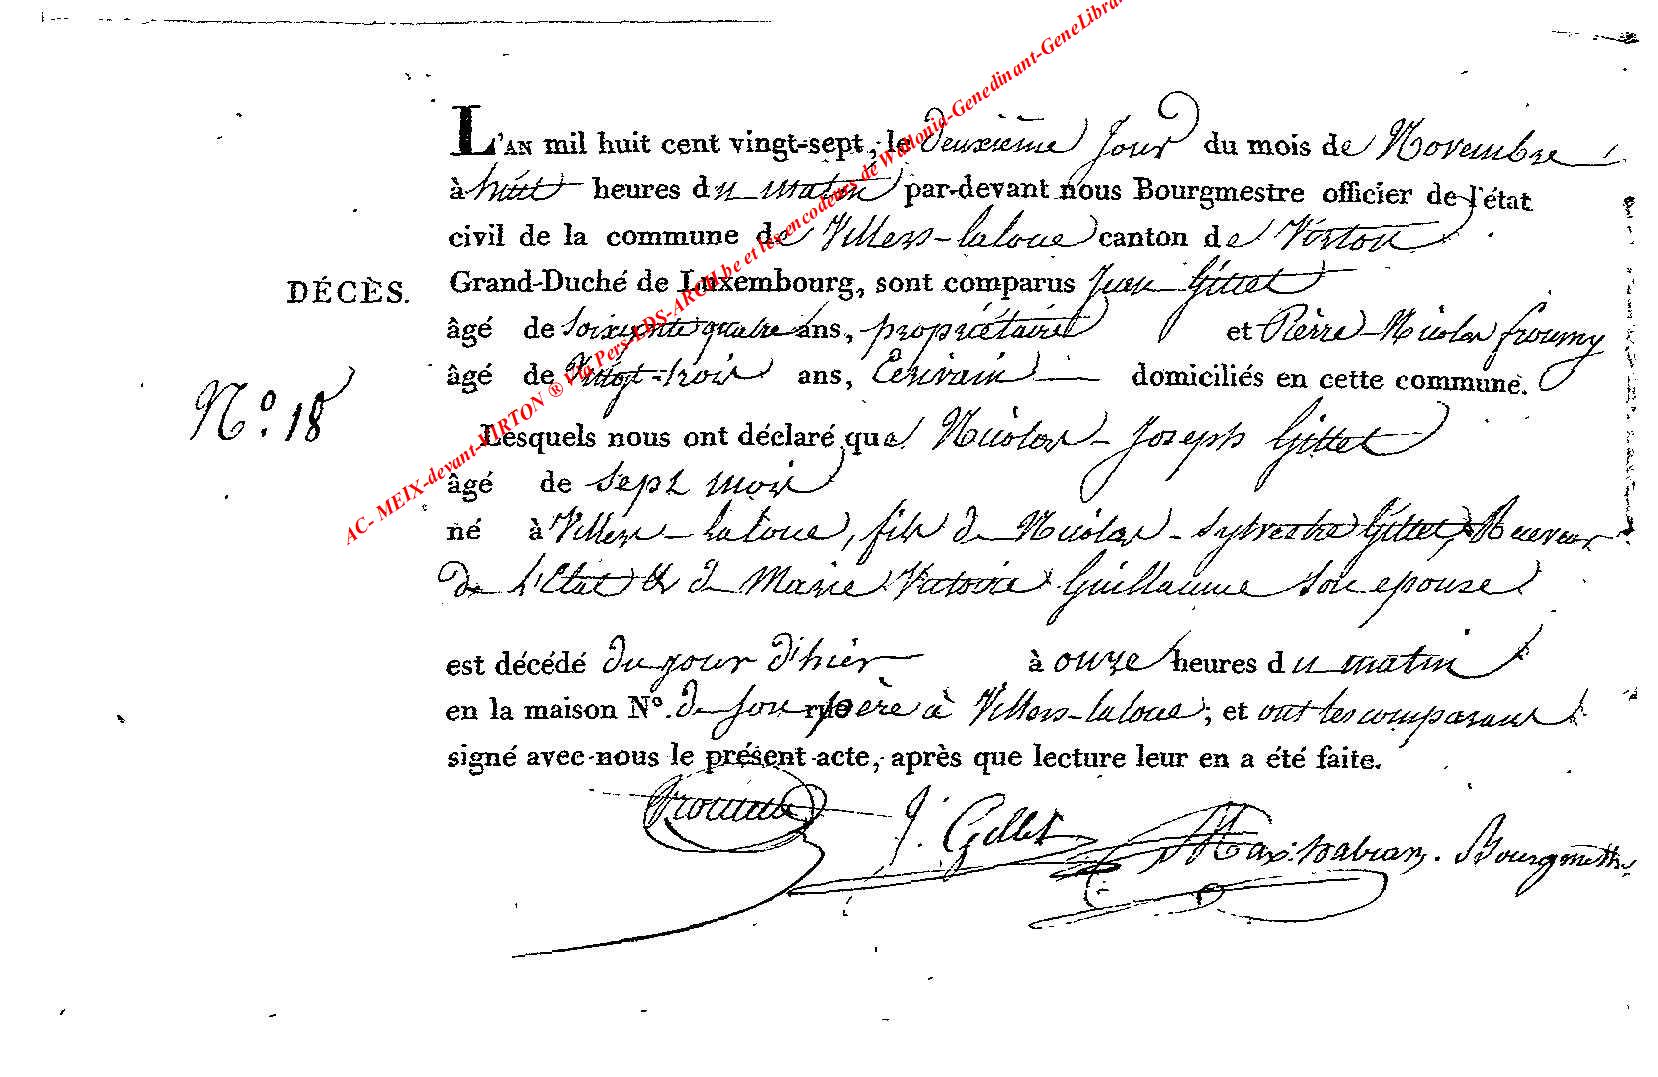 L'AN mil huit cent vingt-sept, le deuxième jour du mois de Novembre
à huit heures du matin par-devant nous Bourgmestre officier de l'état
civil de la commune de Villers-laloue canton de Virton
DÉCÈS.
Grand-Duché de Luxembourg, sont comparus Jean Gillet
âgé de soixante quatre ans, propriétaire et Pierre-Nicolas
âgé de Vingt-trois ans, Ecrivain domiciliés en cette commune.
N.o 18
Lesquels nous ont déclaré que Nicolas-Joseph Gillet
âgé de sept mois
né à Villers-laloue, fils de Nicolas-Sylvestre Gillet, Receveur
de l'Etat & de Marie Victoire Guillaume son epouse
est décédé du jour d'hier à onze heures du matin
en la maison No. de son rue père à Villers-laloue; et ont les comparans
signé avec-nous le présent acte, après que lecture leur en a été faite.
J. Gillet
Bourgmettre
AC- MEIX-devant-VIRTON ® Via Pers-LDS-ARCH.be et les encodeurs de Wallonia-Genedinant-GeneLibra